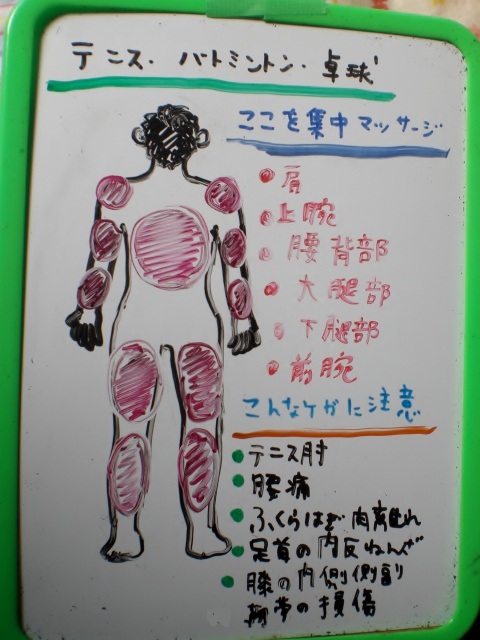 テニス・バトミントン・卓球
ここを集中マッサージ
肩
上腕
腰背部
大腿部
下腿部
前腕
こんなケガに注意
テニス肘
腰痛
ふくらはぎ肉離れ
足首の内反ねんざ
膝の内側側副
靭帯の損傷